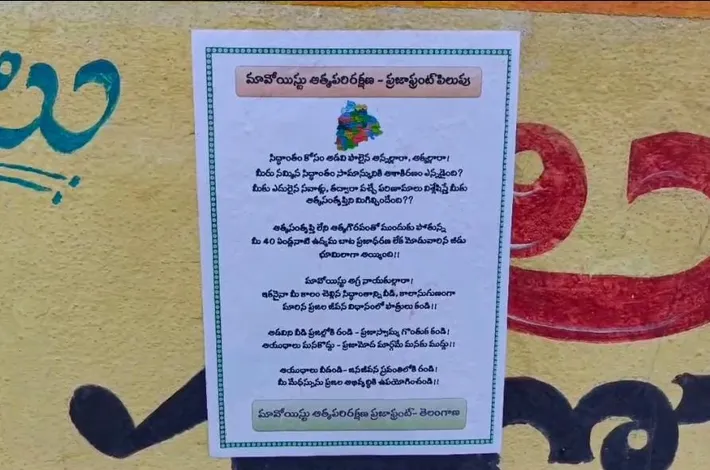 మావోయిస్టు ఆత్మపరిరక్షణ - ప్రజాఫ్రంట్ పిలుపు
సిద్ధాంతం కోసం అడవి పాలైన అన్నల్లారా, అక్కల్లారా!
మీరు నమ్మిన సిద్ధాంతం సామాన్యునికి అక్కరకొచ్చింది ఎన్నడైంది?
మీకు ఎదురైన సవాళ్లు, తద్వారా వచ్చే పరిణామాలు విశ్లేషిస్తే మీకు
ఆత్మసంతృప్తిని మిగిల్చిందేంది??
ఆత్మసంతృప్తి లేని ఆత్మగౌరవంతో ముందుకు పోతున్న
మీ 40 ఏండ్లనాటి ఉద్యమ బాట ప్రజాధరణ లేక మోడువారిన బీడు
భూమిలాగా అయ్యింది!!
మావోయిస్టు అగ్ర నాయకుల్లారా!
ఇకనైనా మీ కాలం చెల్లిన సిద్ధాంతాన్ని వీడి, కాలానుగుణంగా
మారిన ప్రజల జీవన విధానంలో పాత్రులు కండి!!
అడవిని వీడి ప్రజల్లోకి రండి - ప్రజాస్వామ్య గొంతుక కండి!
ఆయుధాలు మనకొద్దు - ప్రజామోద మార్గమే మనకు ముద్దు!!
ఆయుధాలు వీడండి- జనజీవన స్రవంతిలోకి రండి!
మీ మేధస్సును ప్రజల అభివృద్ధికి ఉపయోగించండి!!
మావోయిస్టు ఆత్మపరిరక్షణ ప్రజాఫ్రంట్- తెలంగాణ